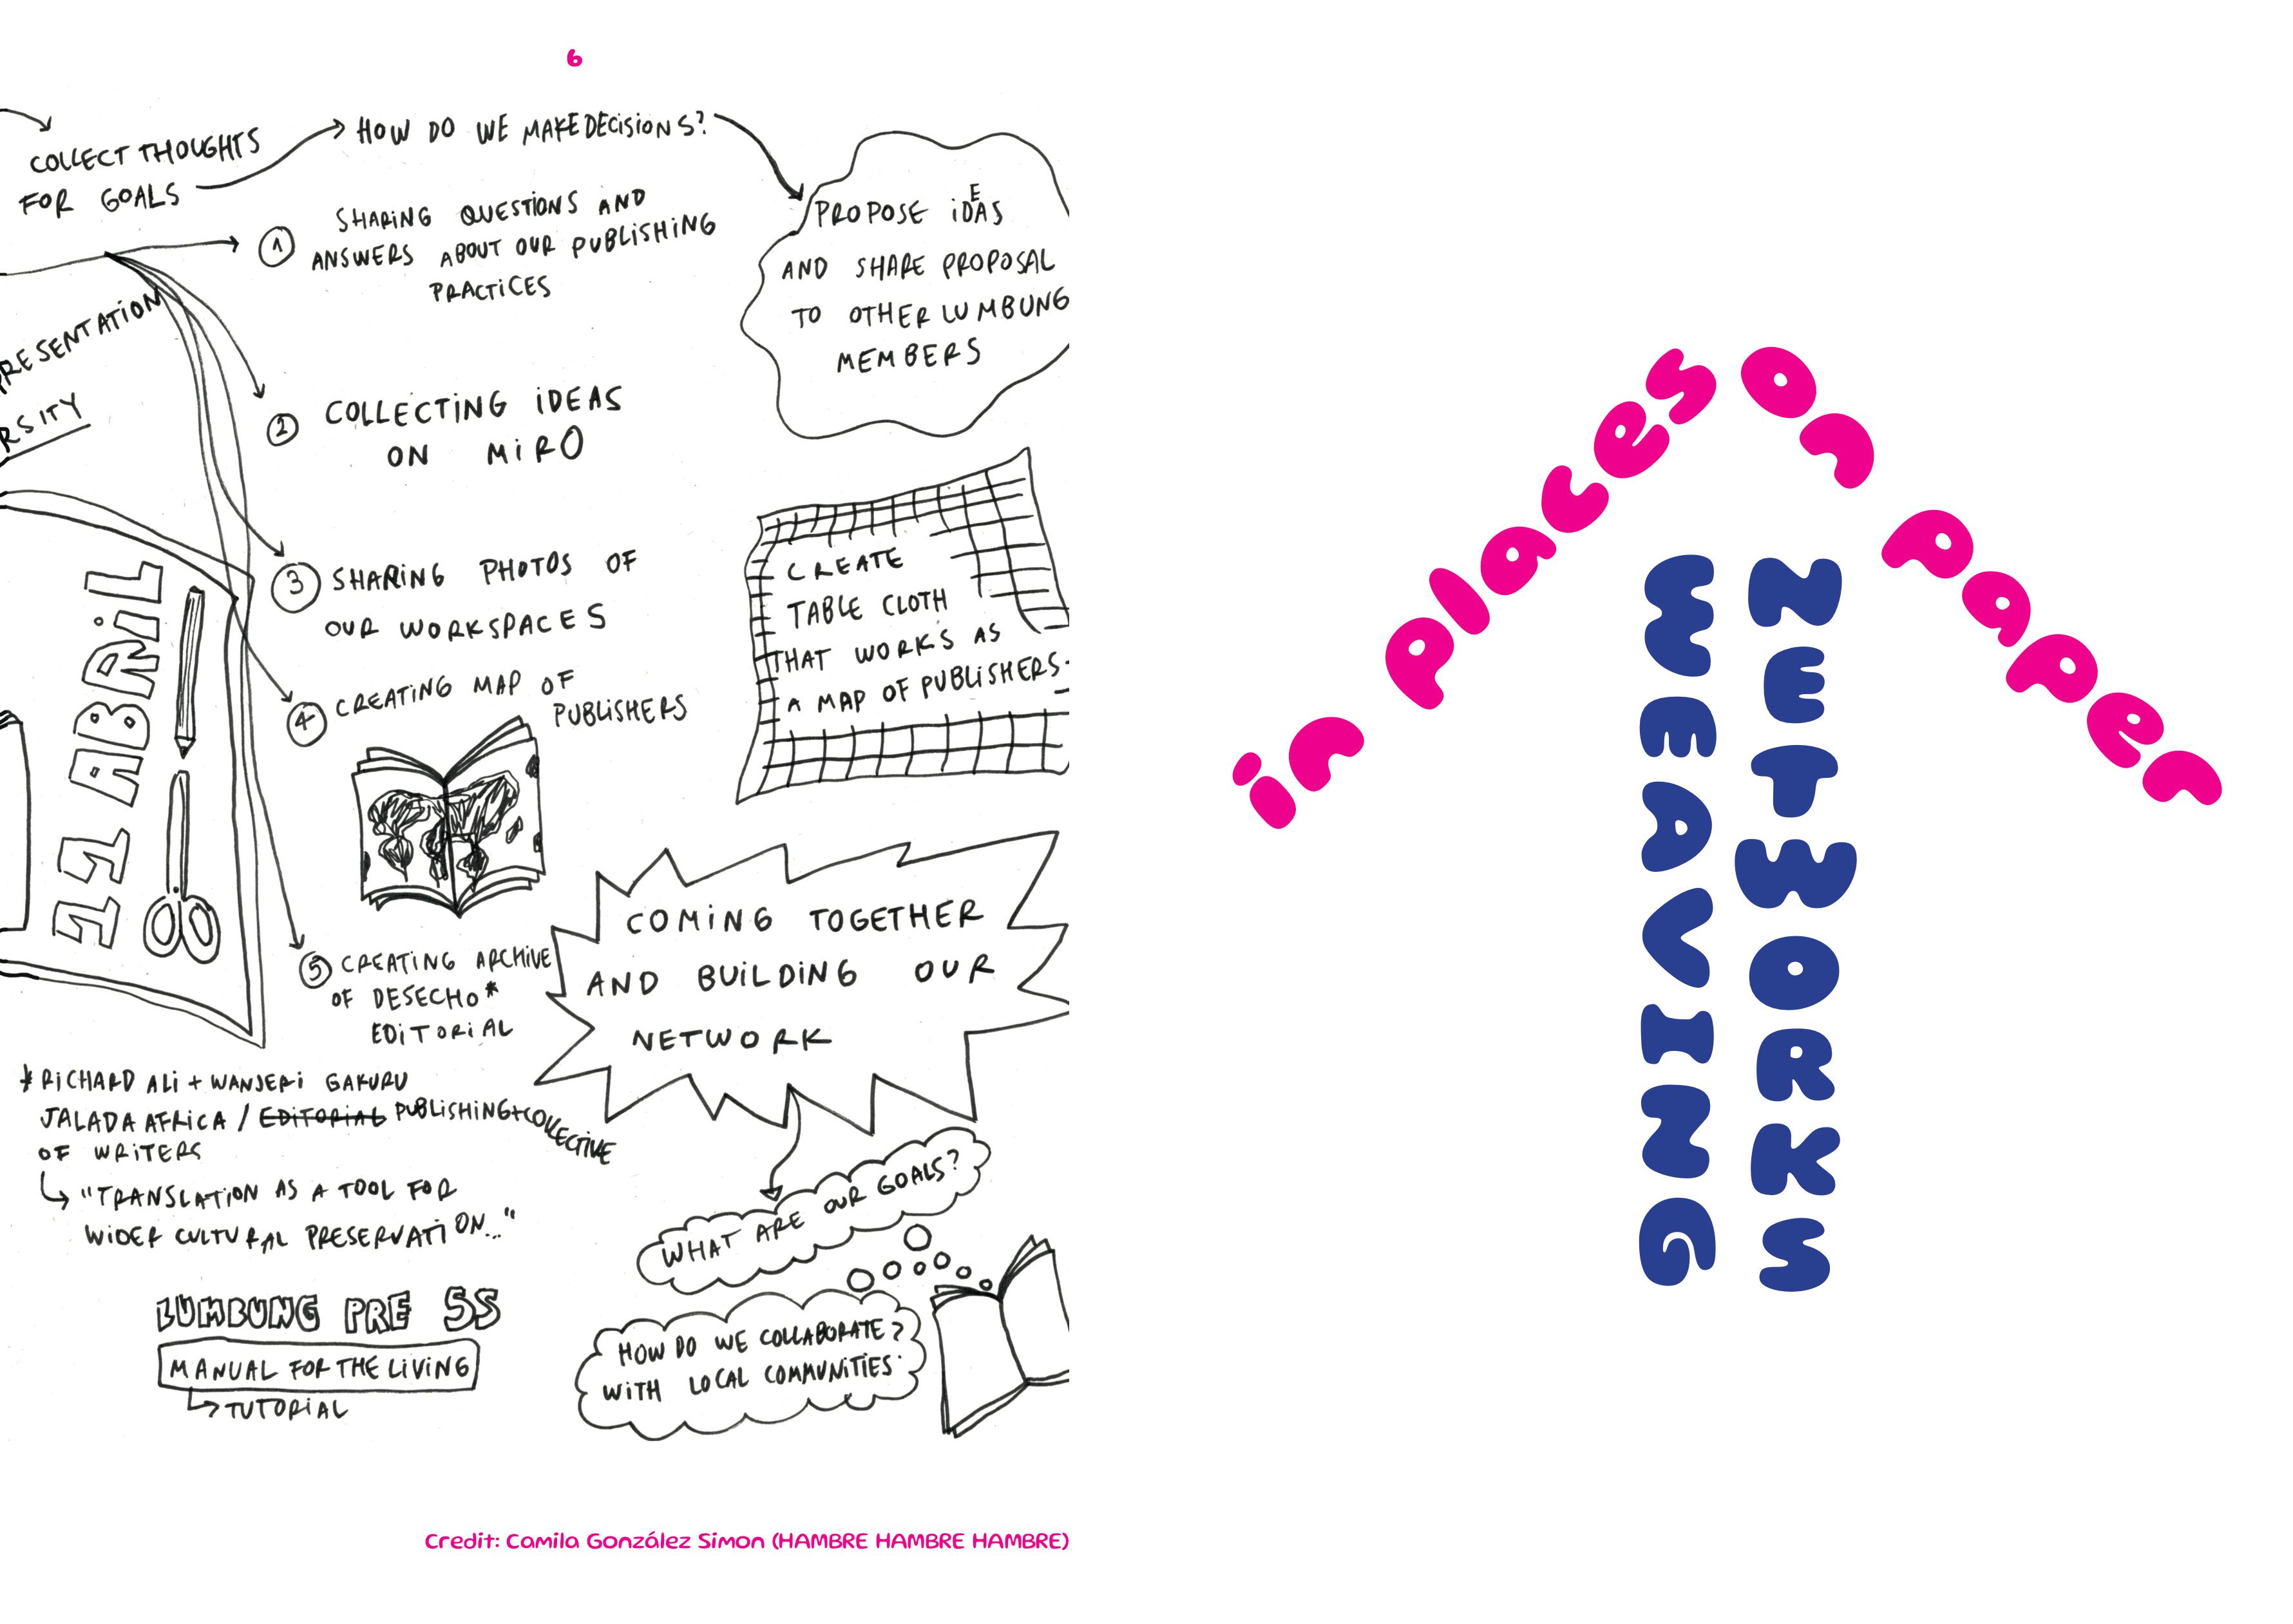 6
COLLECT THOUGHTS
FOR GOALS
HOW DO WE MAKE DECiSiONS?
PROPOSE iDEAS
AND SHARE PROPOSAL
TO OTHER LUMBUNG
MEMBERS
1 SHARiNG QUESTiONS AND
ANSWERS ABOUT OUR PUBLiSHiNG
PRACTiCES
RESENTATiON
RSiTY
2 COLLECTiNG iDEAS
ON MiRO
3 SHARiNG PHOTOS OF
OUR WORKSPACES
4 CREATiNG MAP OF
PUBLiSHERS
CREATE
TABLE CLOTH
THAT WORKS AS
A MAP OF PUBLiSHERS.
11 ABRiL
5 CREATiNG ARCHiVE
OF DESECHO*
EDiTORiAL
COMiNG TOGETHER
AND BUiLDiNG OUR
NETWORK
* RiCHARD ALi + WANJERi GAKURU
JALADA AFRiCA / EDiTORiAL PUBLiSHiNG + COLLECTiVE
OF WRiTERS
"TRANSLATiON AS A TOOL FOR
WiDER CULTURAL PRESERVATiON..."
WHAT ARE OUR GOALS?
HOW DO WE COLLABORATE?
WiTH LOCAL COMMUNiTiES
LUMBUNG PRESS
MANUAL FOR THE LiViNG
TUTORiAL
Credit: Camila González Simon (HAMBRE HAMBRE HAMBRE)
in places on paper
WEAVING
NETWORKS